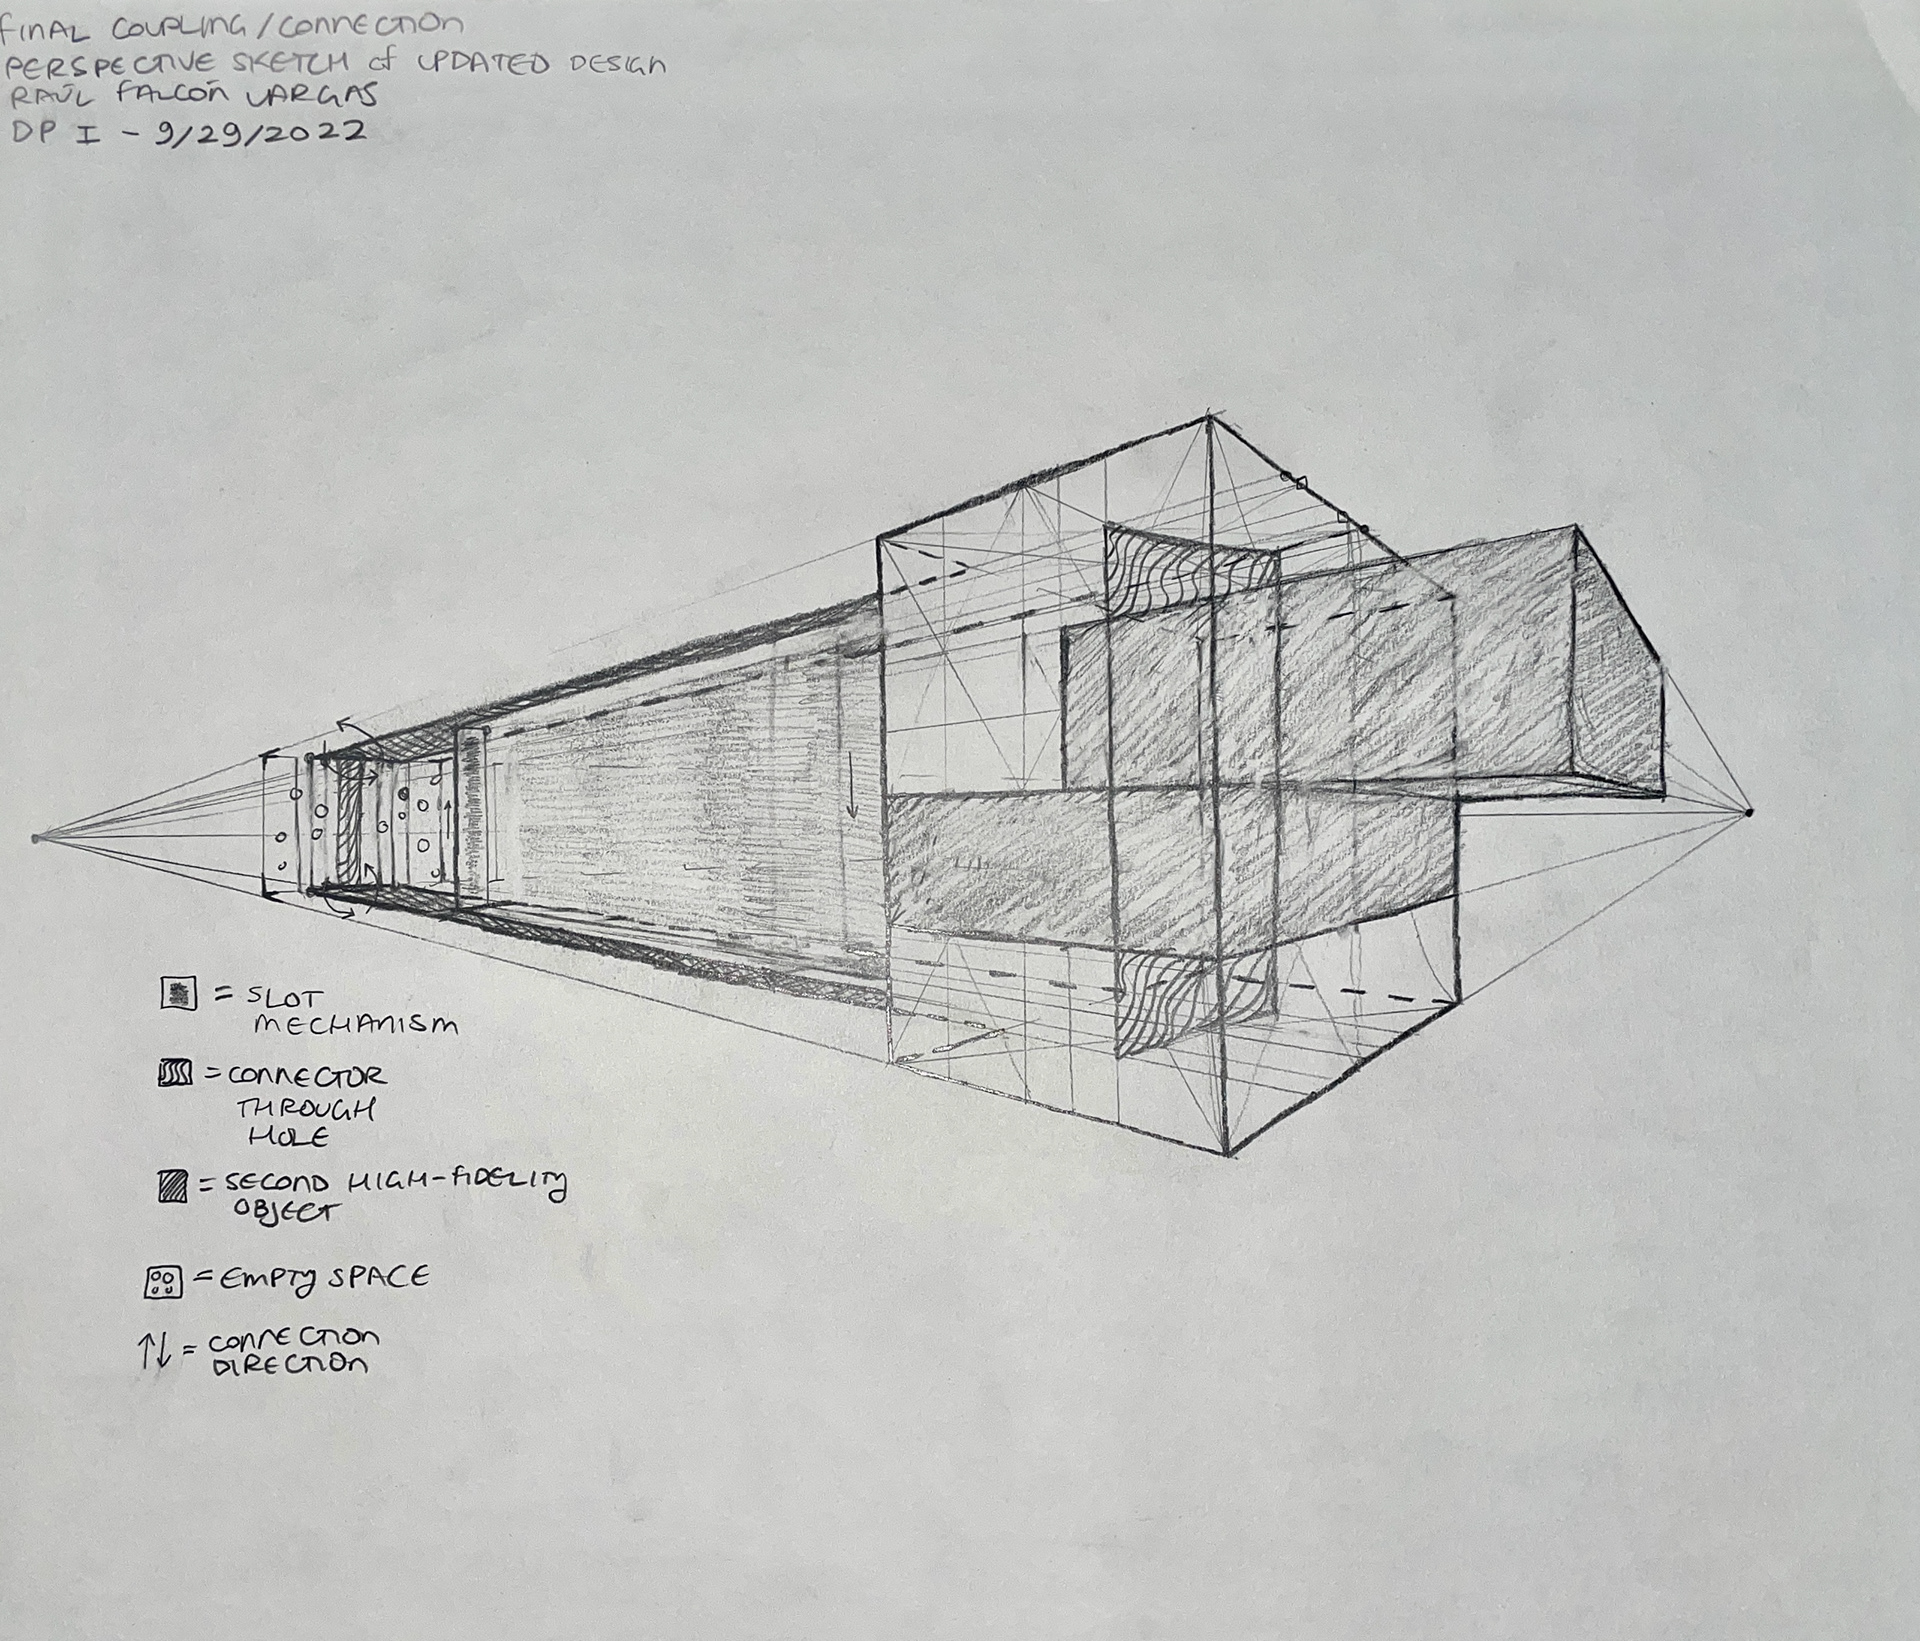 FINAL COUPLING / CONNECTION
PERSPECTIVE SKETCH of UPDATED DESIGN
RAÚL FALCÓN VARGAS
DP I - 9/29/2022
= SLOT
MECHANISM
= CONNECTOR
THROUGH
HOLE
= SECOND HIGH-FIDELITY
OBJECT
= EMPTY SPACE
↑↓ = CONNECTION
DIRECTION